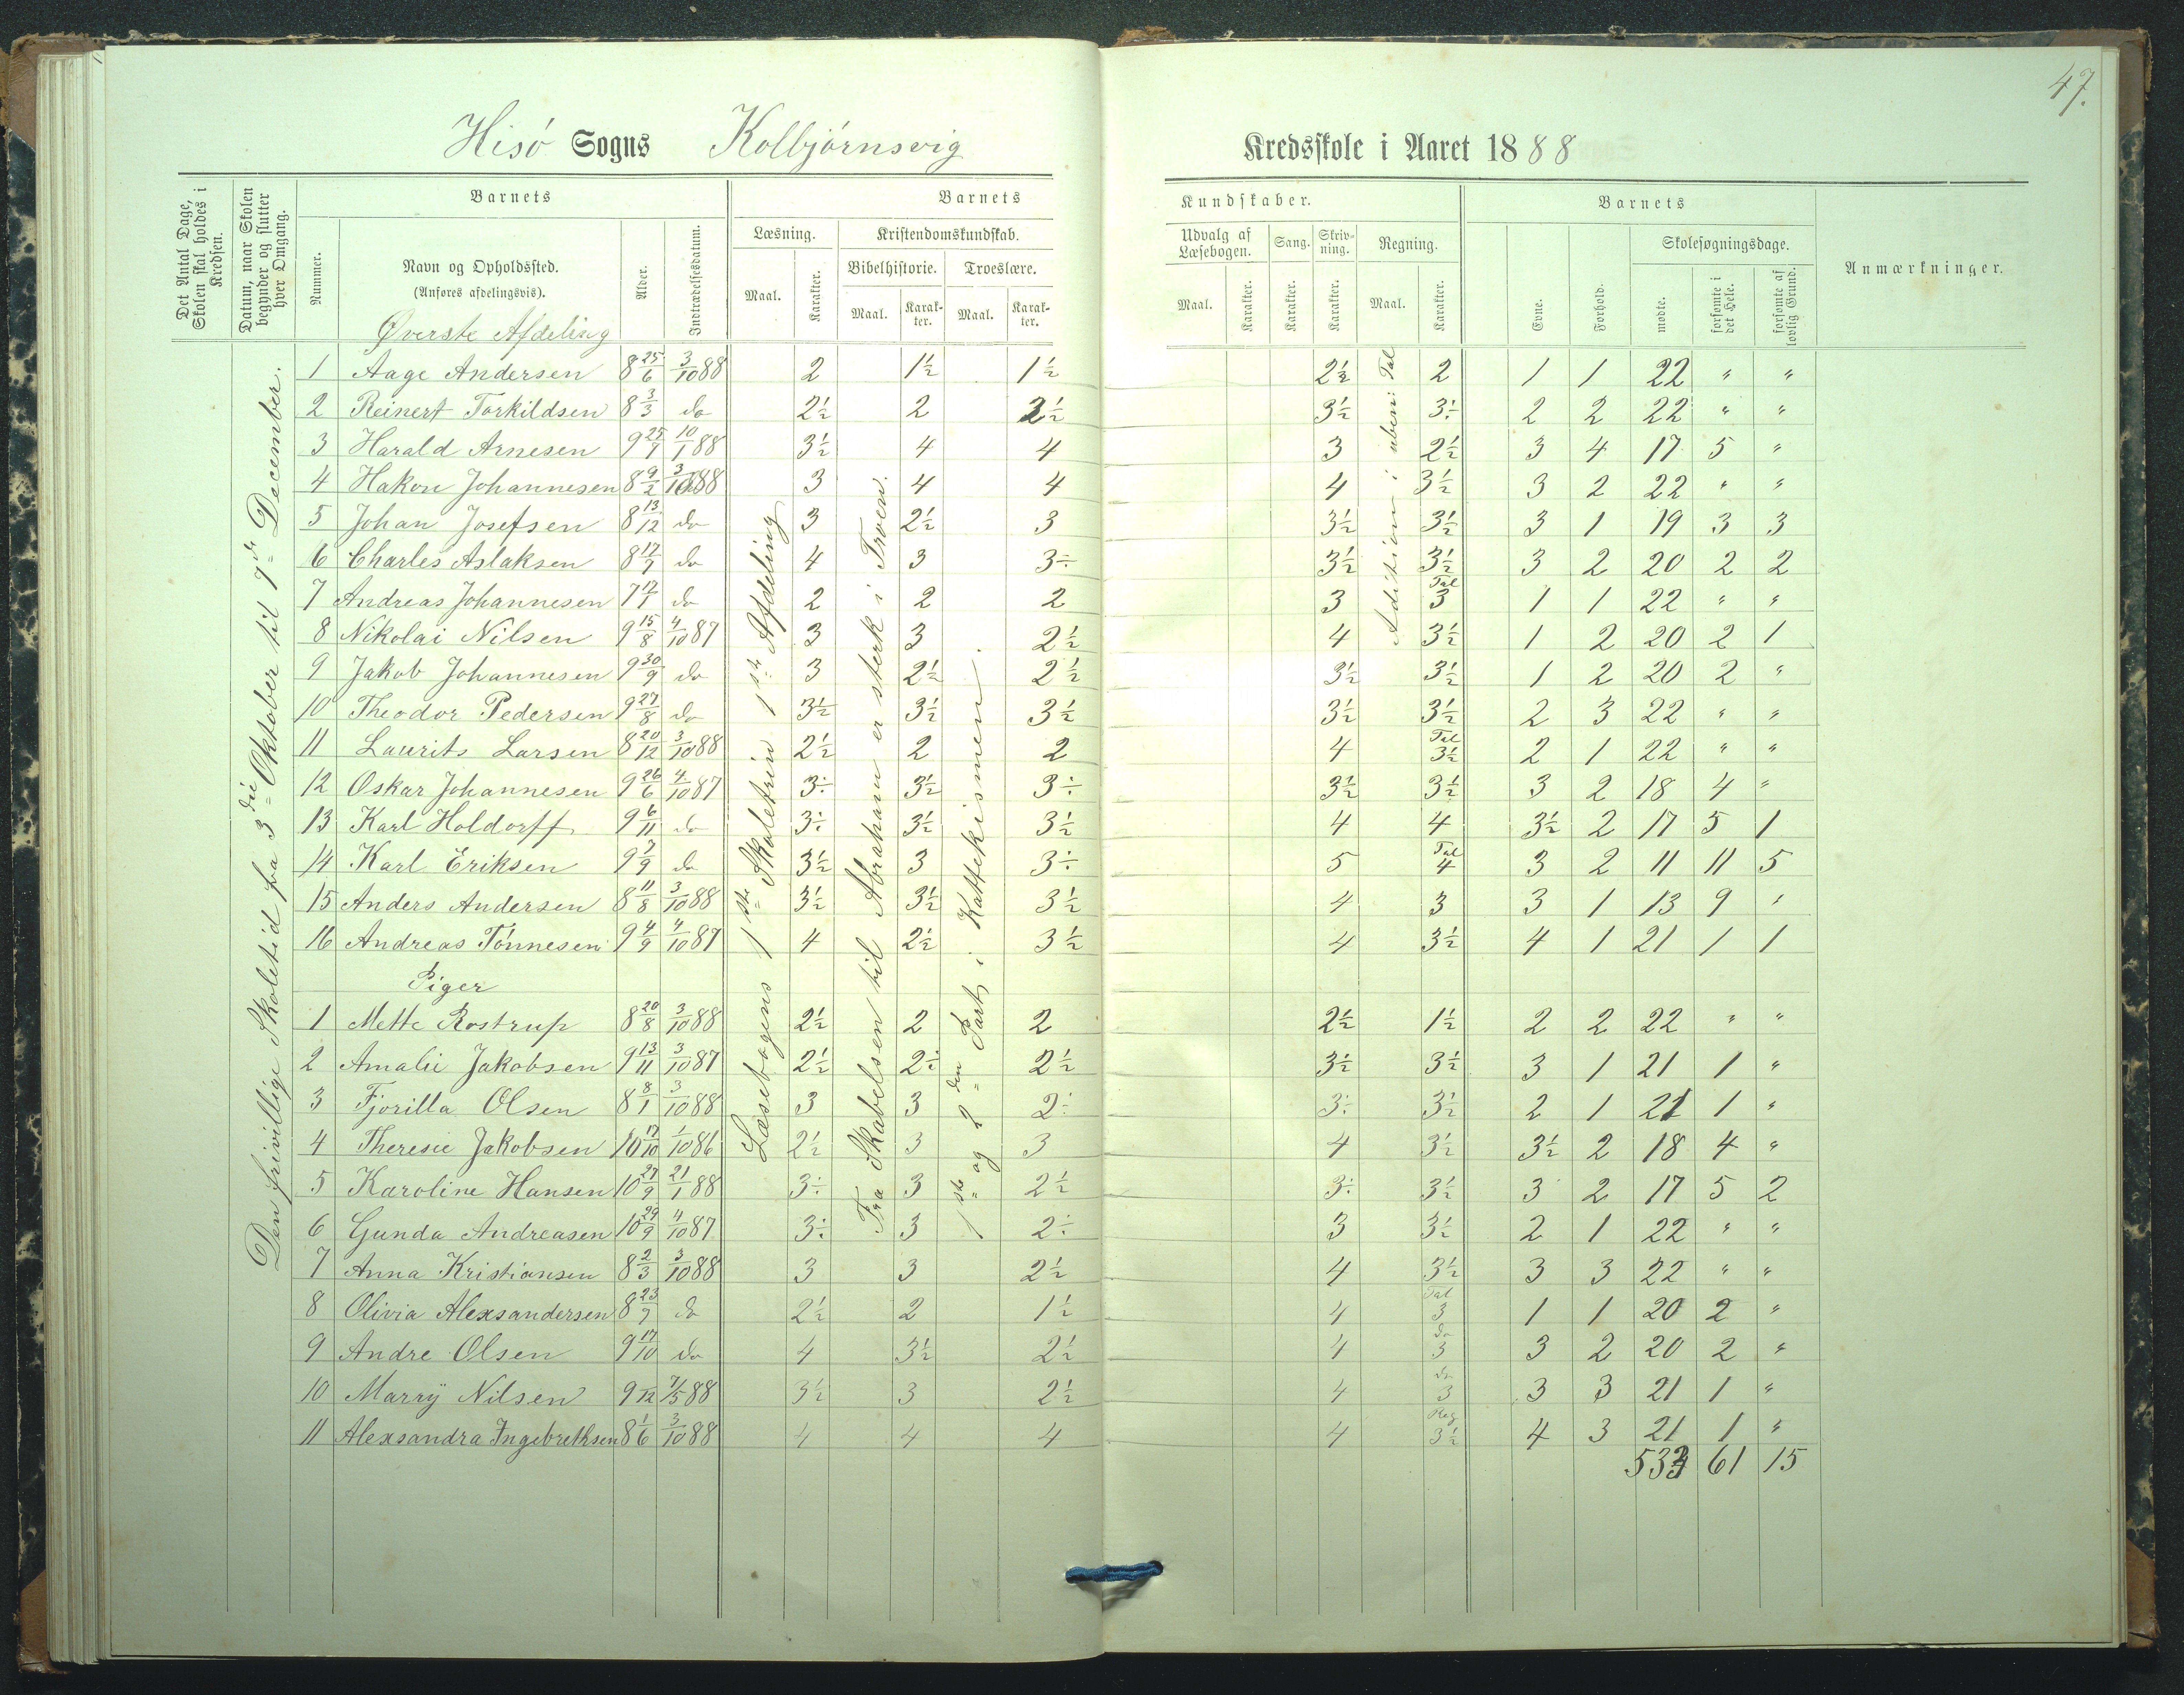 47.
Hisö Sogns Kolbjörnsvig Kredsskole i Aaret 1888
Det Antal Dage, Skolen skal holdes i Kredsen.
Datum, naar Skolen begynder og slutter hver Omgang.
Barnets
Nummer.
Navn og Opholdssted.
(Anføres afdelingsvis).
Øverste Afdeling
Alder.
Indtrædelsesdatum.
Barnets Kundskaber.
Læsning. Kristendomskundskab. Udvalg af Læsebogen. Sang. Skrivning. Regning.
Bibelhistorie. Troeslære.
Maal. Karakter. Maal. Karakter. Maal. Karakter. Maal. Karakter. Karakter. Karakter. Maal. Karakter.
Barnets
Evne. Forhold. Skolesøgningsdage.
mødte. forsømte i det Hele. forsømte af lovlig Grund.
Anmærkninger.
Den frivillige Skoletid fra 3die Oktober til 7de December.
Læsebogens 1ste Skoletrin 1ste Afdeling
Fra Skabelsen til Abraham er sterk i Troen.
1ste og 2den Part i Kattekismen.
Adition i uben: Tal
1 Aage Andersen 8 25/6 3/10 88 2 1½ 1½ 2½ 2 1 1 22 " "
2 Reinert Torkildsen 8 3/3 do 2½ 2 2½ 3½ 3÷ 2 2 22 " "
3 Harald Arnesen 9 25/7 10/1 88 3½ 4 4 3 2½ 3 4 17 5 "
4 Hakon Johannesen 8 9/2 3/10 88 3 4 4 4 3½ 3 2 22 " "
5 Johan Josefsen 8 13/12 do 3 2½ 3 3½ 3½ 3 1 19 3 3
6 Charles Aslaksen 8 17/7 do 4 3 3÷ 3½ 3½ 3 2 20 2 2
7 Andreas Johannesen 7 12/1 do 2 2 2 3 Tal 3 1 1 22 " "
8 Nikolai Nilsen 9 15/8 4/10 87 3 3 2½ 4 3½ 1 2 20 2 1
9 Jakob Johannesen 9 30/9 do 3 2½ 2½ 3½ 3½ 1 2 20 2 "
10 Theodor Pedersen 9 27/8 do 3½ 3½ 3½ 3½ 3½ 2 3 22 " "
11 Laurits Larsen 8 20/12 3/10 88 2½ 2 2 4 Tal 3½ 2 1 22 " "
12 Oskar Johannesen 9 26/6 4/10 87 3÷ 3½ 3÷ 3½ 3½ 3 2 18 4 "
13 Karl Holdorff 9 6/11 do 3÷ 3½ 3½ 4 4 3½ 2 17 5 1
14 Karl Eriksen 9 7/9 do 3½ 3 3÷ 5 Tal 4 3 2 11 11 5
15 Anders Andersen 8 11/8 3/10 88 3½ 3½ 3½ 4 3 3 1 13 9 "
16 Andreas Tönnesen 9 4/9 4/10 87 4 2½ 3½ 4 3½ 4 1 21 1 1
Piger
1 Mette Rostrup 8 20/8 3/10 88 2½ 2 2 2½ 1½ 2 2 22 " "
2 Amalie Jakobsen 9 13/11 3/10 87 2½ 2÷ 2½ 3½ 3½ 3 1 21 1 "
3 Fjorilla Olsen 8 8/1 3/10 88 3 3 2÷ 3÷ 3½ 2 1 21 1 "
4 Theresie Jakobsen 10 17/10 1/10 86 2½ 3 3 4 3½ 3½ 2 18 4 "
5 Karoline Hansen 10 27/9 21/1 88 3÷ 3 2½ 3÷ 3½ 3 2 17 5 2
6 Gunda Andreasen 10 29/9 4/10 87 3÷ 3 2÷ 3 3½ 2 1 22 " "
7 Anna Kristiansen 8 2/3 3/10 88 3 3 2½ 4 3½ 3 3 22 " "
8 Olivia Alexsandersen 8 23/7 do 2½ 2 1½ 4 Tal 3 1 1 20 2 "
9 Andre Olsen 9 17/10 do 4 3½ 2½ 4 do 3 3 2 20 2 "
10 Marry Nilsen 9 /12 7/5 88 3½ 3 2½ 4 do 3 3 3 21 1 "
11 Alexsandra Ingebrethsen 8 1/6 3/10 88 4 4 4 4 Reg 3½ 4 3 21 1 "
533 61 15